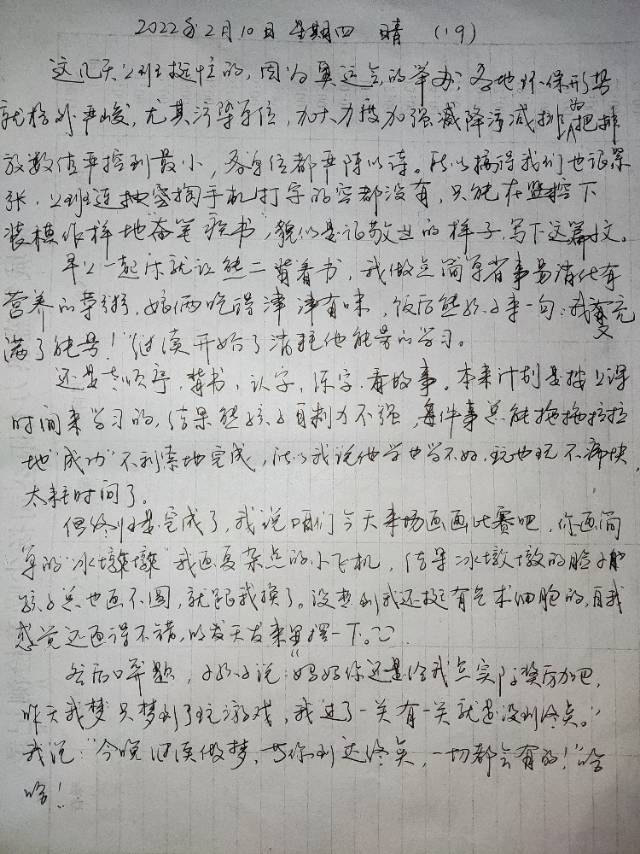 2022年2月10日 星期四 晴 (19)
这几天上班挺忙的,因为奥运会的举办,各地环保形势
就格外严峻,尤其污染单位,加大力度加强减降污减排,为把排
放数值严控到最小,各单位都严阵以待。所以搞得我们也很紧
张,上班连抽空掏手机打字的空都没有,只能在监控下
装模作样地奋笔疾书,貌似是很敬业的样子,写下这篇文。
早上一起床就让熊二背着书,我做点简单省事易消化有
营养的早粥,娘俩吃得津津有味,饭后熊孩子来一句:我要充
满了能号!继续开始了清理他能号的学习。
还是老顺序,背书,认字,练字,看故事。本来计划是按上课
时间来学习的,结果熊孩子自制力不强,每件事总能拖拖拉拉
地“成功”不利索地完成,所以我说他学也学不好,玩也玩不痛快,
太耗时间了。
但终归是完成了,我说咱们今天来场画画比赛吧,你画简
单的“冰墩墩”我画复杂点的小飞机,结果冰墩墩的脸
孩子总也画不圆,就跟我换了。没想到我还挺有艺术细胞的,自我
感觉还画得不错,的发天发来显摆一下。
然后口算题,孩子说:“妈妈你还是给我点实际奖励吧,
昨天我梦只梦到了玩游戏,我过了一关有一关就是没到终点。”
我说:“今晚继续做梦,与你到达终点,一切都会有的!”哈
哈!